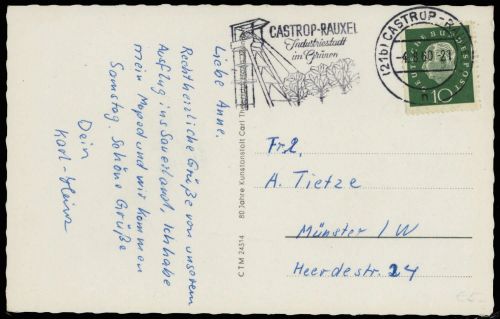 Liebe Anne.
Recht herzliche Grüße von unserem
Ausflug ins Sauerland, Ich habe
mein Moped und wir kommen
Samstag. Schöne Grüße
Dein
Karl-Heinz
80 Jahre Kunstanstalt Carl
C T M 24514
CASTROP-RAUXEL
Industriestadt
im Grünen
(21b) CASTROP-R
-4.8.60-21
DEUTSCHE BUNDESPOST
10
Frl.
A. Tietze
Münster / W
Heerdestr. 24